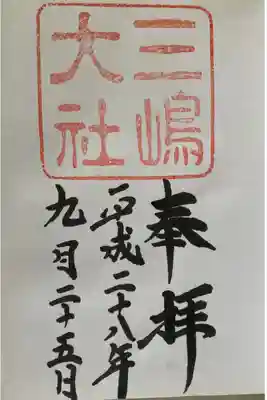 三嶋
大社
奉拝
平成二十八年
九月二十五日